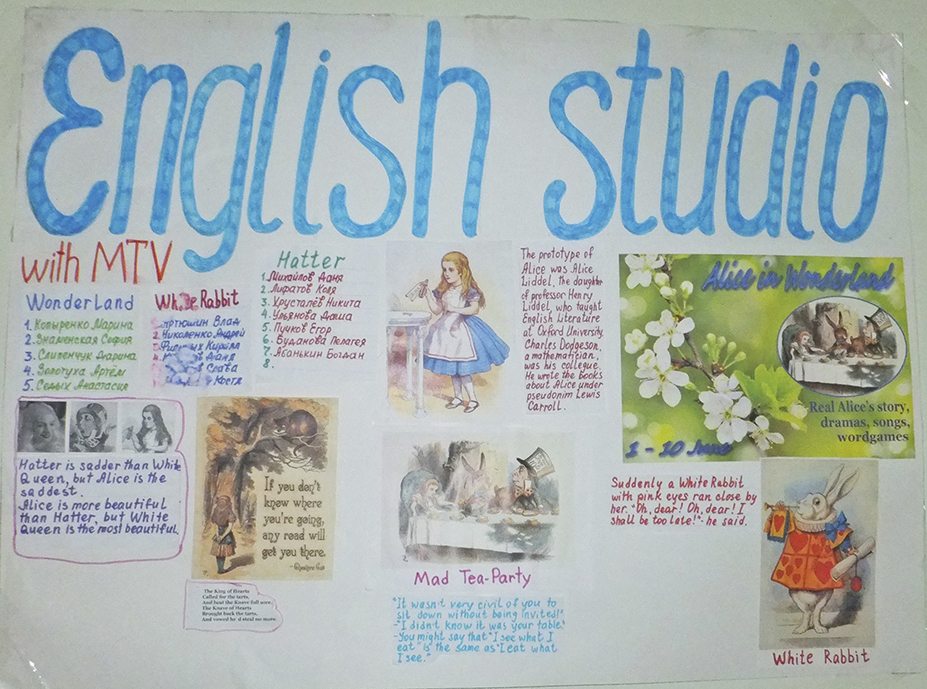 English studio
with MTV
Wonderland
1. Копыренко Марина
2. Знаменская София
3. Сливенчук Дарина
4. Золотуха Артём
5. Седых Анастасия
White Rabbit
Артюшин Влад
2. Николенко Андрей
Кирилл
4. Даня
Слава
Костя
Hatter
1. Михайлов Даня
2. Лифатов Коля
3. Хрусталёв Никита
4. Ульянова Даша
5. Пучков Егор
6. Буданова Пелагея
7. Ябанькин Богдан
8.
The prototype of
Alice was Alice
Liddel, the daughter
of professor Henry
Liddel, who taught
English Literature
at Oxford University.
Charles Dodgeson,
a mathematician,
was his collegue.
He wrote the books
about Alice under
pseudonim Lewis
Carroll.
Alice in Wonderland
Real Alice's story,
dramas, songs,
wordgames
1 - 10 June
Hatter is sadder than White
Queen, but Alice is the
saddest.
Alice is more beautiful
than Hatter, but White
Queen is the most beautiful.
If you don't
know where
you're going,
any road will
get you there.
The King of Hearts
Called for the tarts,
And beat the Knave full sore.
The Knave of Hearts
Brought back the tarts,
And vowed he'd steal no more.
Mad Tea-Party
"It wasn't very civil of you to
sit down without being invited!"
-"I didn't know it was your table."
-You might say that "I see what I
eat" is the same as "I eat what
I see."
Suddenly a White Rabbit
with pink eyes ran close by
her. "Oh, dear! Oh, dear! I
shall be too late!"- he said.
White Rabbit